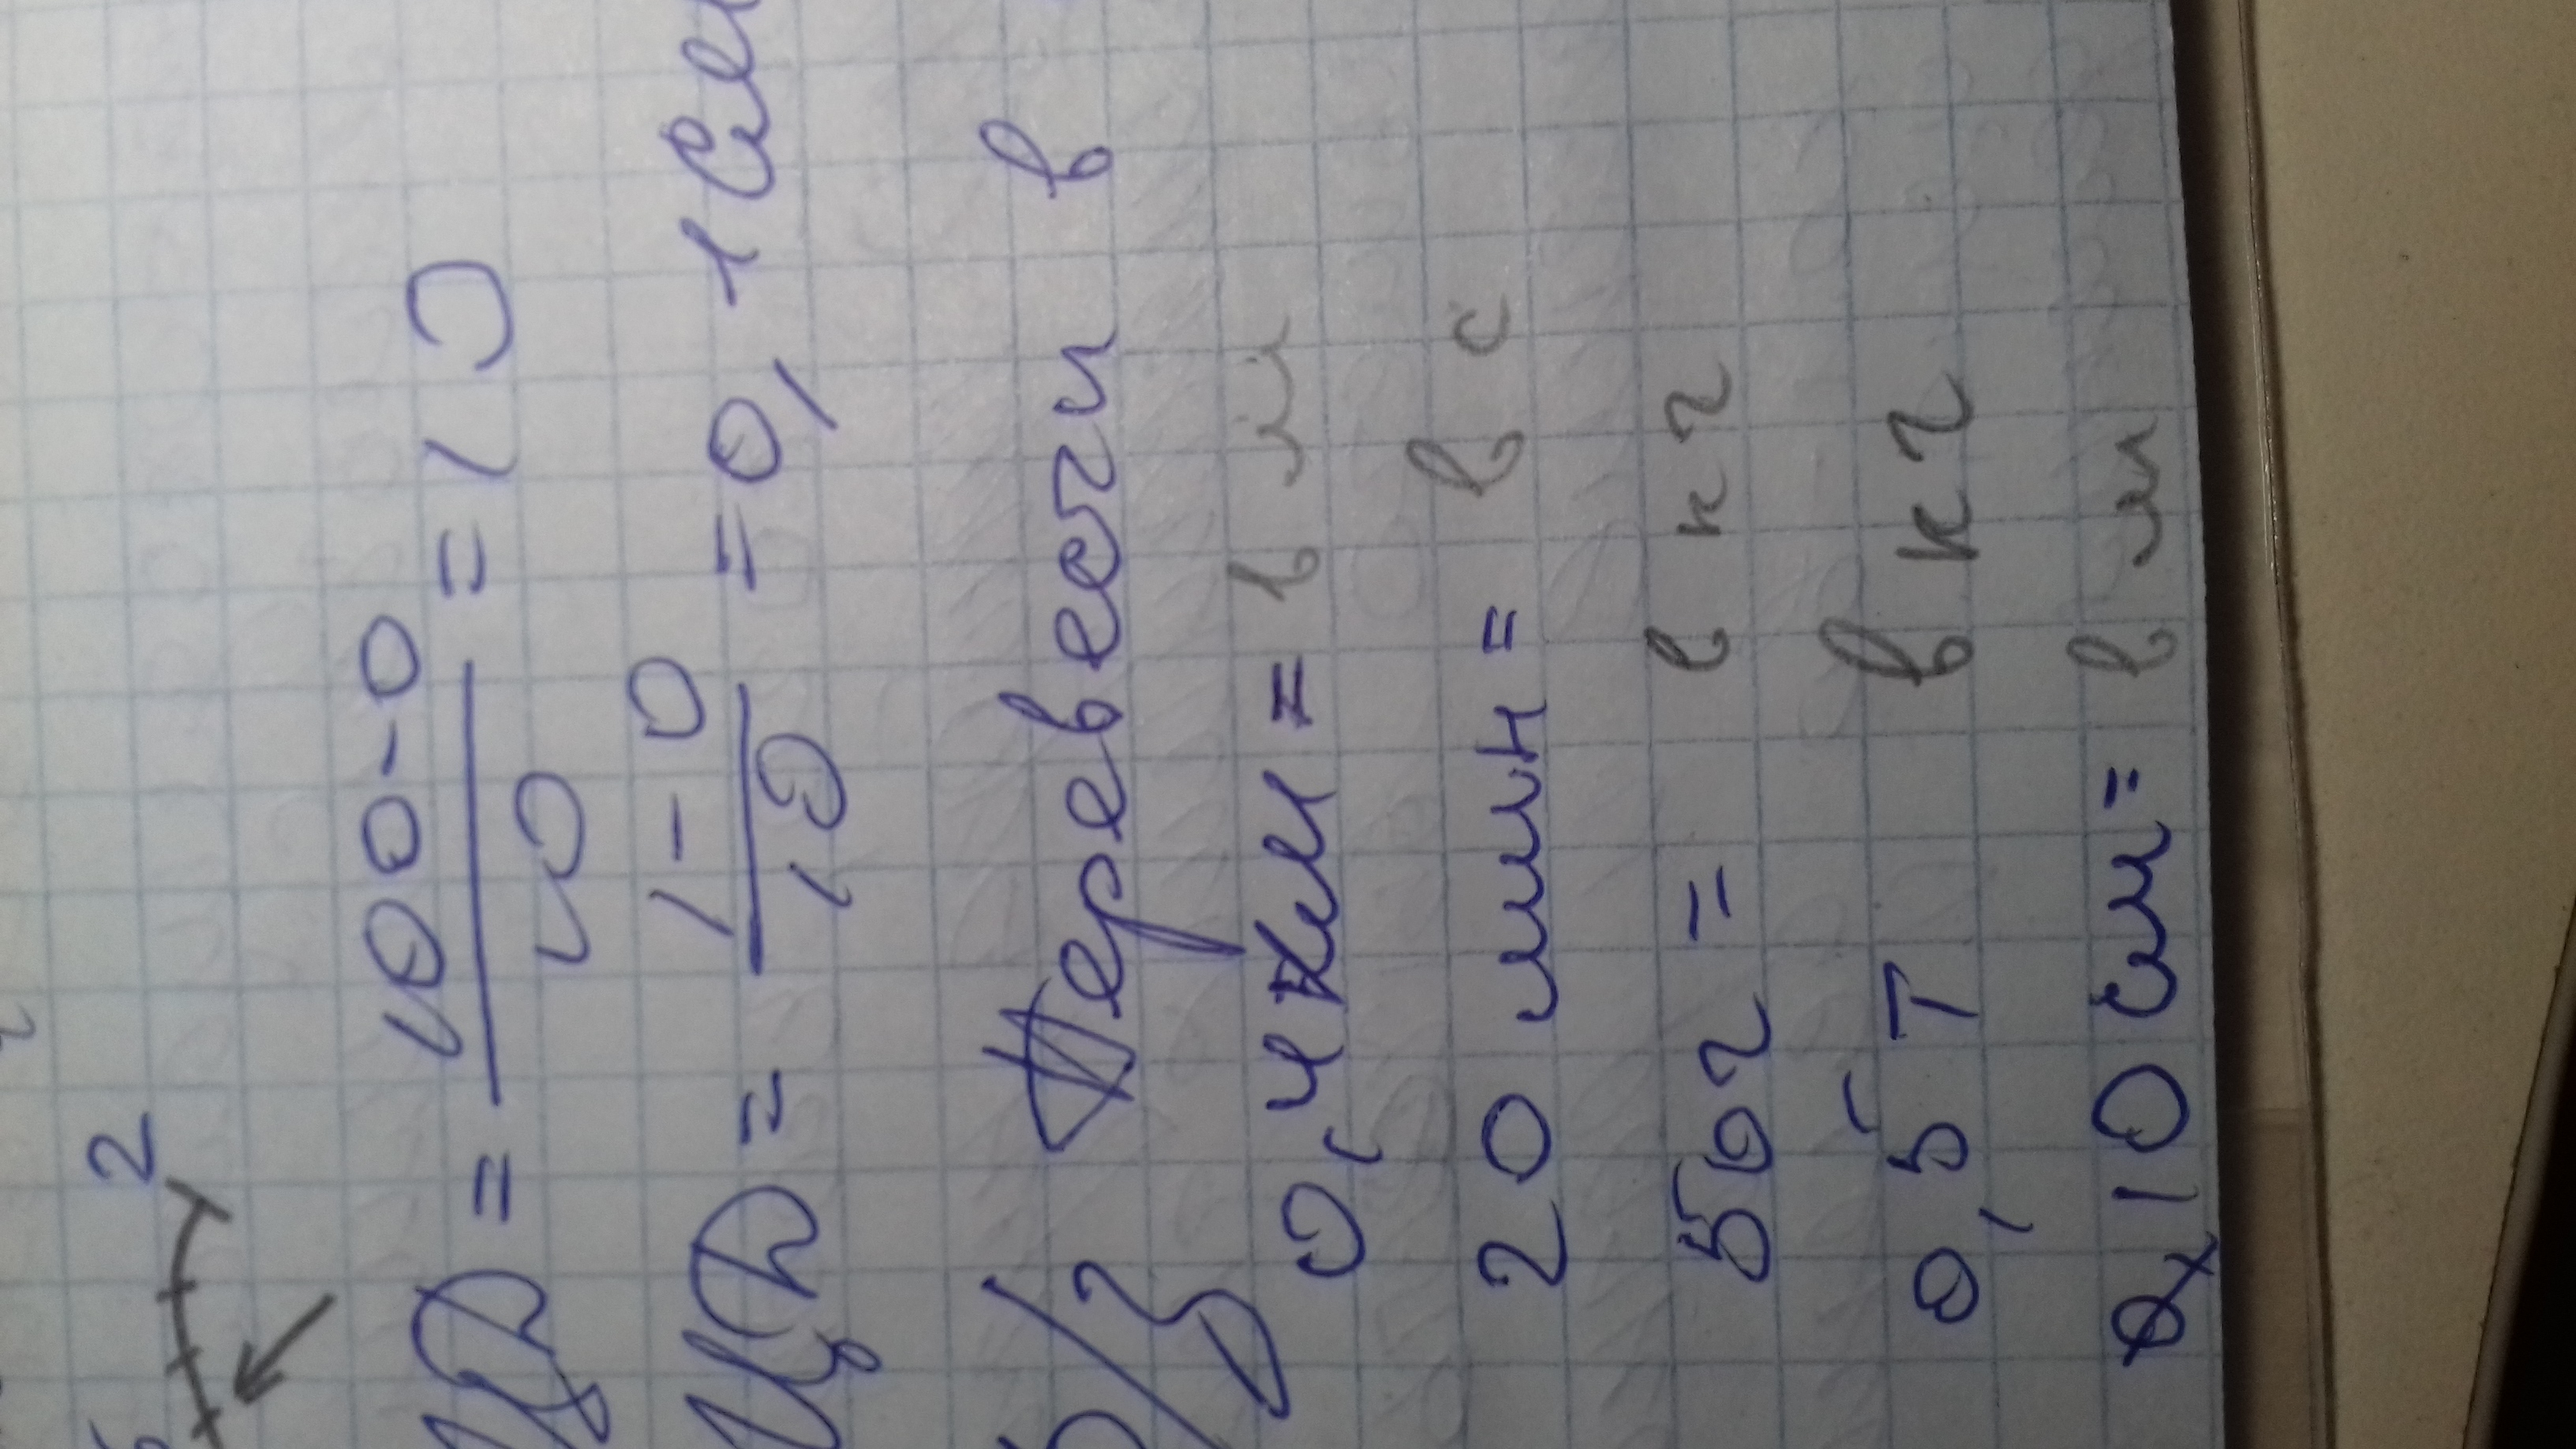 2
ЦД = 100-0 / 10 = 10
ЦД = 1-0 / 10 = 0,1 см
Д/З Перевести в
0,4 км = в м
20 мин = в с
50г = в кг
0,5 Т в кг
10 см = в м